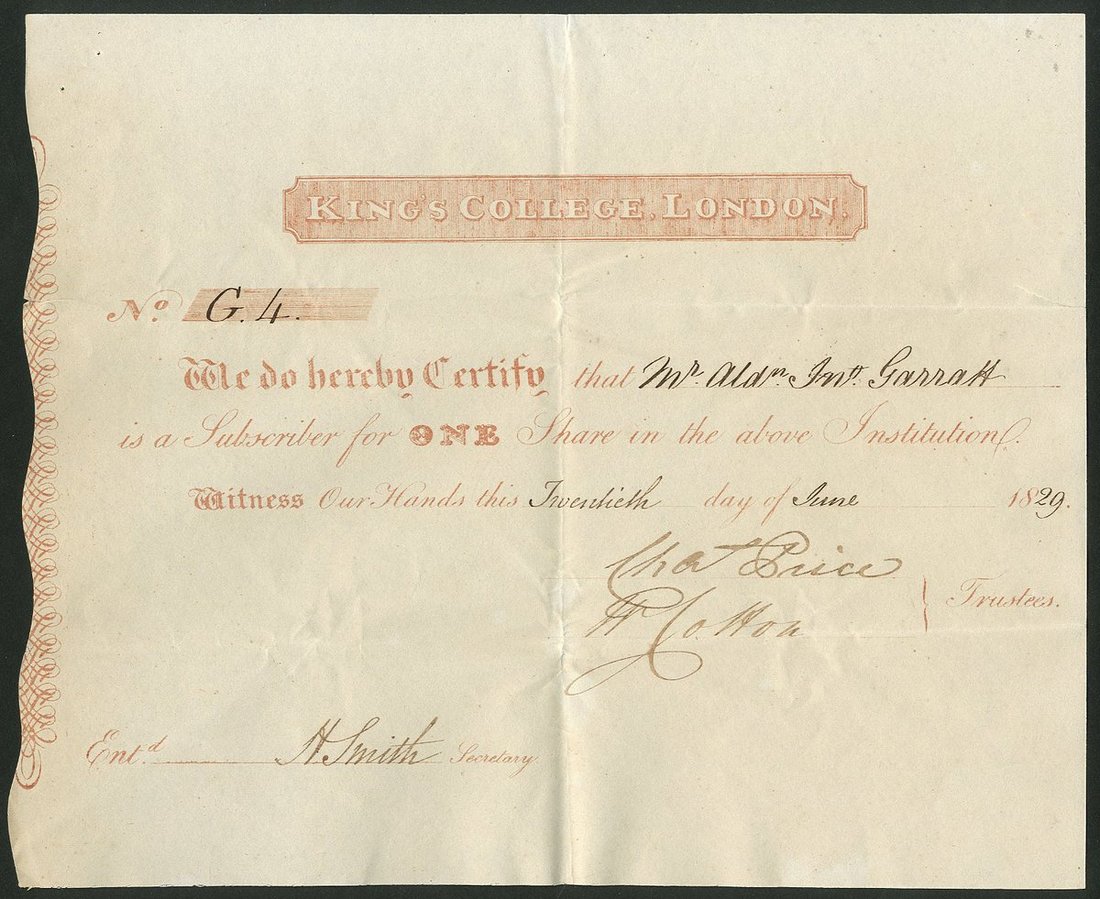 KING'S COLLEGE, LONDON.
No. G. 4.
We do hereby Certify that Mr. Aldn. Jno. Garratt
is a Subscriber for ONE Share in the above Institution.
Witness Our Hands this Twentieth day of June 1829.
Chas Price
W Cotton
Trustees.
Entd. H Smith Secretary